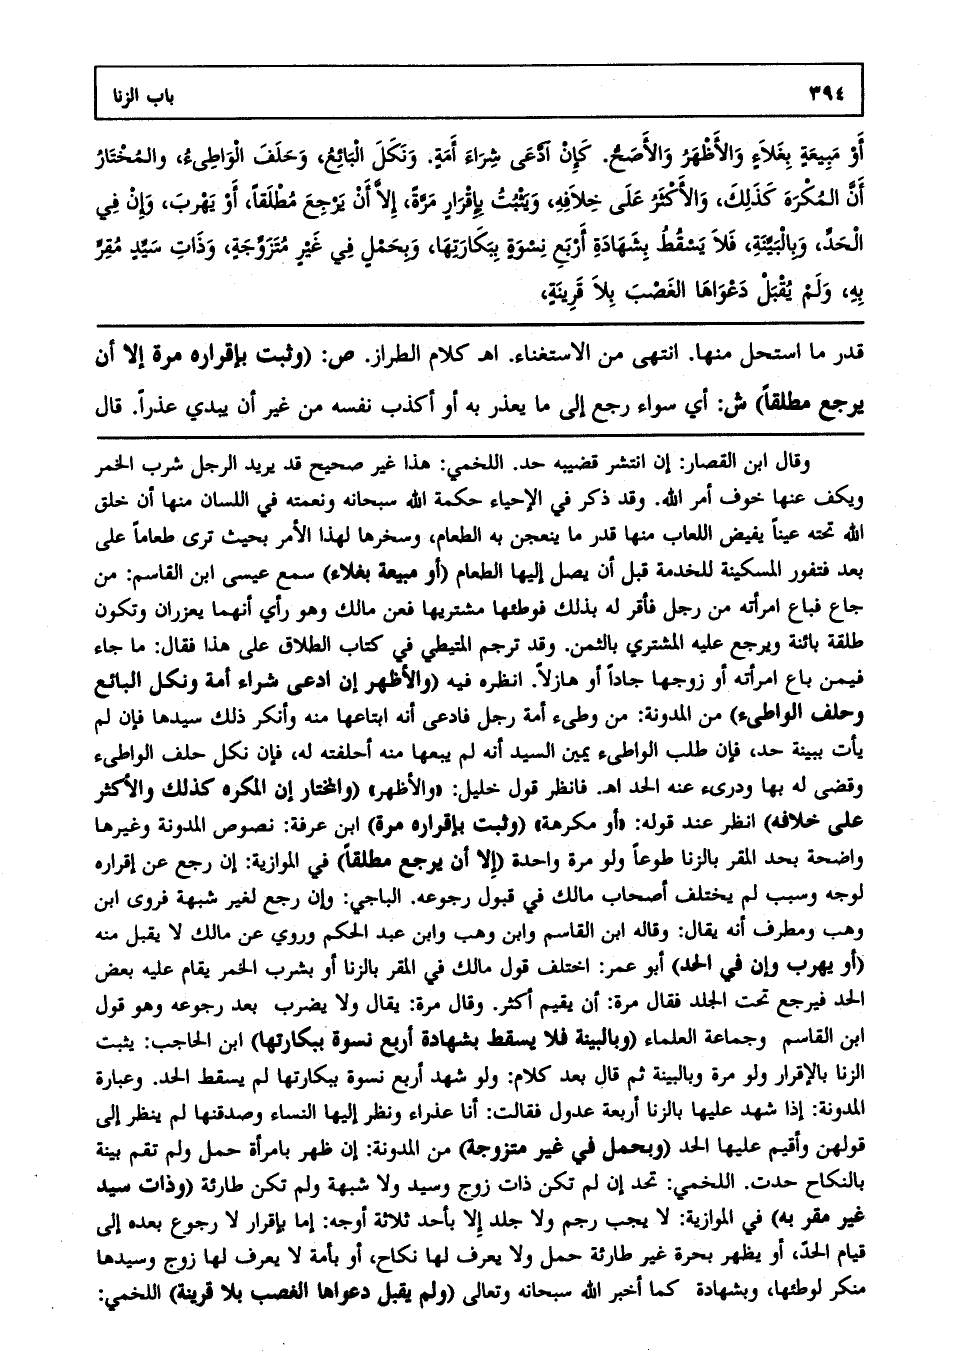 ٣٩٤
باب الزنا
أَوْ مَبِيعَةٍ بِغَلاَءٍ وَالأَظْهَرُ وَالأَصَحُّ. كَإِنْ آدَّعَى شِرَاءَ أَمَةٍ. وَنَكَلَ الْبَائِعُ، وَحَلَفَ الْوَاطِىءُ، والـمُخْتَارُ
أَنَّ الـمُكْرَهَ كَذَلِكَ، وَالأَكْثَرُ عَلَى خِلاَفِهِ، وَيَثْبُتُ بِإِقْرَارٍ مَرَّةً، إِلاَّ أَنْ يَرْجِعَ مُطْلَقاً، أَوْ يَهْرِبَ، وَإِنْ فِي
الْحَدِّ، وَبِالْبَيِّنَةِ، فَلاَ يَسْقُطُ بِشَهَادَةِ أَرْبَعِ نِسْوَةٍ بِبَكَارَتِهَا، وَبِحَمْلٍ فِي غَيْرِ مُتَزَوِّجَةٍ، وَذَاتِ سَيِّدٍ مُقِرٍّ
بِهِ، وَلَمْ يُقْبَلْ دَعْوَاهَا الغَصْبَ بِلاَ قَرِينَةٍ،
قدر ما استحل منها. انتهى من الاستغناء. اهـ كلام الطراز. ص: (وثبت بإقراره مرة إلا أن
يرجع مطلقاً) ش: أي سواء رجع إلى ما يعذر به أو أكذب نفسه من غير أن يبدي عذراً. قال
وقال ابن القصار: إن انتشر قضيبه حد. اللخمي: هذا غير صحيح قد يريد الرجل شرب الخمر
ويكف عنها خوف أمر الله. وقد ذكر في الإحياء حكمة الله سبحانه ونعمته في اللسان منها أن خلق
الله تحته عيناً يفيض اللعاب منها قدر ما ينعجن به الطعام، وسخرها لهذا الأمر بحيث ترى طعاماً على
بعد فتفور المسكينة للخدمة قبل أن يصل إليها الطعام (أو مبيعة بغلاء) سمع عيسى ابن القاسم: من
جاع فباع امرأته من رجل فأقر له بذلك فوطئها مشتريها فعن مالك وهو رأي أنهما يعزران وتكون
طلقة بائنة ويرجع عليه المشتري بالثمن. وقد ترجم المتيطي في كتاب الطلاق على هذا فقال: ما جاء
فيمن باع امرأته أو زوجها جاداً أو هازلاً. انظره فيه (والأظهر إن ادعى شراء أمة ونكل البائع
وحلف الواطىء) من المدونة: من وطىء أمة رجل فادعى أنه ابتاعها منه وأنكر ذلك سيدها فإن لم
يأت ببينة حد، فإن طلب الواطىء يمين السيد أنه لم يبعها منه أحلفته له، فإن نكل حلف الواطىء
وقضى له بها ودرىء عنه الحد اهـ. فانظر قول خليل: «والأظهر» (والمختار إن المكره كذلك والأكثر
على خلافه) انظر عند قوله: «أو مكرهة» (وثبت بإقراره مرة) ابن عرفة: نصوص المدونة وغيرها
واضحة بحد المقر بالزنا طوعاً ولو مرة واحدة (إلا أن يرجع مطلقاً) في الموازية: إن رجع عن إقراره
لوجه وسبب لم يختلف أصحاب مالك في قبول رجوعه. الباجي: وإن رجع لغير شبهة فروى ابن
وهب ومطرف أنه يقال: وقاله ابن القاسم وابن وهب وابن عبد الحكم وروي عن مالك لا يقبل منه
(أو يهرب وإن في الحد) أبو عمر: اختلف قول مالك في المقر بالزنا أو بشرب الخمر يقام عليه بعض
الحد فيرجع تحت الجلد فقال مرة: أن يقيم أكثر. وقال مرة: يقال ولا يضرب بعد رجوعه وهو قول
ابن القاسم وجماعة العلماء (وبالبينة فلا يسقط بشهادة أربع نسوة ببكارتها) ابن الحاجب: يثبت
الزنا بالإقرار ولو مرة وبالبينة ثم قال بعد كلام: ولو شهد أربع نسوة ببكارتها لم يسقط الحد. وعبارة
المدونة: إذا شهد عليها بالزنا أربعة عدول فقالت: أنا عذراء ونظر إليها النساء وصدقنها لم ينظر إلى
قولهن وأقيم عليها الحد (وبحمل في غير متزوجة) من المدونة: إن ظهر بامرأة حمل ولم تقم بينة
بالنكاح حدت. اللخمي: تحد إن لم تكن ذات زوج وسيد ولا شبهة ولم تكن طارئة (وذات سيد
غير مقر به) في الموازية: لا يجب رجم ولا جلد إلا بأحد ثلاثة أوجه: إما بإقرار لا رجوع بعده إلى
قيام الحدّ، أو يظهر بحرة غير طارئة حمل ولا يعرف لها نكاح، أو بأمة لا يعرف لها زوج وسيدها
منكر لوطئها، وبشهادة كما أخبر الله سبحانه وتعالى (ولم يقبل دعواها الغصب بلا قرينة) اللخمي: